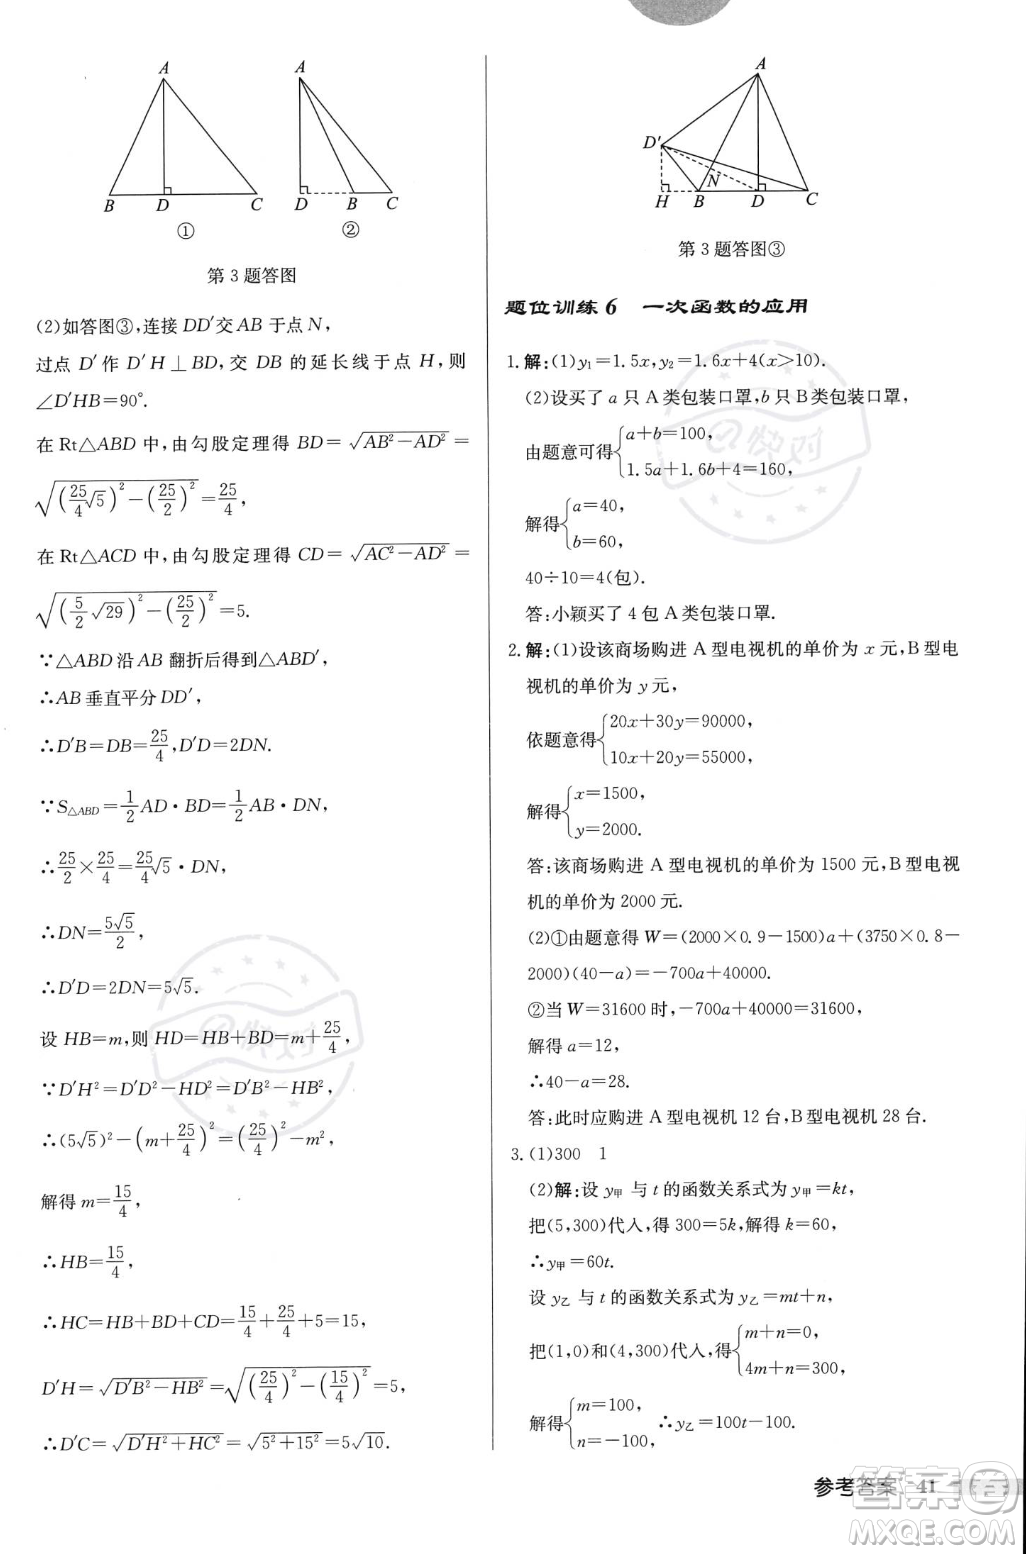 A
B D C
①
A
D B C
②
第3题答图
(2)如答图③,连接 DD′交 AB 于点 N,
过点 D′作 D′H⊥BD,交 DB 的延长线于点 H,则
∠D′HB=90°.
在 Rt△ABD 中,由勾股定理得 BD=√(AB²-AD²)=
√((25/4√5)²-(25/2)²)=25/4,
在 Rt△ACD 中,由勾股定理得 CD=√(AC²-AD²)=
√((5/2√29)²-(25/2)²)=5.
∵△ABD沿 AB 翻折后得到△ABD′,
∴AB垂直平分 DD′,
∴D′B=DB=25/4,D′D=2DN.
∵S△ABD=1/2AD·BD=1/2AB·DN,
∴25/2×25/4=25/4√5·DN,
∴DN=5√5/2,
∴D′D=2DN=5√5.
设 HB=m,则 HD=HB+BD=m+25/4,
∵D′H²=D′D²-HD²=D′B²-HB²,
∴(5√5)²-(m+25/4)²=(25/4)²-m²,
解得 m=15/4,
∴HB=15/4,
∴HC=HB+BD+CD=15/4+25/4+5=15,
D′H=√(D′B²-HB²)=√((25/4)²-(15/4)²)=5,
∴D′C=√(D′H²+HC²)=√(5²+15²)=5√10.
A
D′
N
H B D C
第3题答图③
题位训练6 一次函数的应用
1.解:(1)y₁=1.5x,y₂=1.6x+4(x>10).
(2)设买了 a 只 A 类包装口罩,b 只 B类包装口罩,
由题意可得{a+b=100,
1.5a+1.6b+4=160,
解得{a=40,
b=60,
40÷10=4(包).
答:小颖买了 4 包 A类包装口罩.
2.解:(1)设该商场购进 A 型电视机的单价为 x 元,B型电
视机的单价为 y 元,
依题意得{20x+30y=90000,
10x+20y=55000,
解得{x=1500,
y=2000.
答:该商场购进 A 型电视机的单价为 1500 元,B型电视
机的单价为 2000 元.
(2)①由题意得 W=(2000×0.9-1500)a+(3750×0.8-
2000)(40-a)=-700a+40000.
②当 W=31600 时,-700a+40000=31600,
解得 a=12,
∴40-a=28.
答:此时应购进 A 型电视机 12 台,B型电视机 28 台.
3.(1)300 1
(2)解:设 y甲 与 t 的函数关系式为 y甲=kt,
把(5,300)代入,得 300=5k,解得 k=60,
∴y甲=60t.
设 y乙 与 t 的函数关系式为 y乙=mt+n,
把(1,0)和(4,300)代入,得{m+n=0,
4m+n=300,
解得{m=100,
n=-100, ∴y乙=100t-100.
参考答案 41
答案卷
MXQE.COM
快对
快对